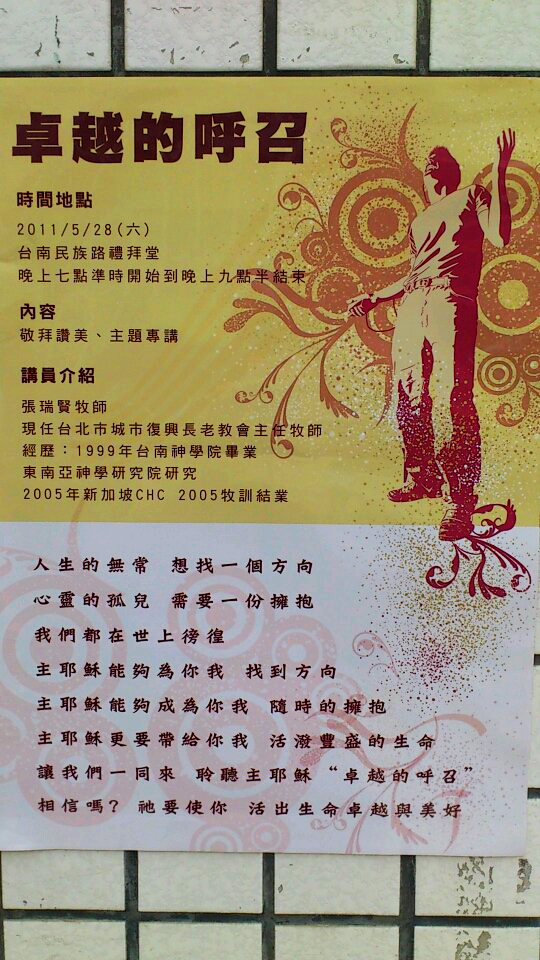 卓越的呼召
時間地點
2011/5/28(六)
台南民族路禮拜堂
晚上七點準時開始到晚上九點半結束
內容
敬拜讚美、主題專講
講員介紹
張瑞賢牧師
現任台北市城市復興長老教會主任牧師
經歷：1999年台南神學院畢業
東南亞神學研究院研究
2005年新加坡CHC 2005牧訓結業
人生的無常 想找一個方向
心靈的孤兒 需要一份擁抱
我們都在世上徬徨
主耶穌能夠為你我 找到方向
主耶穌能夠成為你我 隨時的擁抱
主耶穌更要帶給你我 活潑豐盛的生命
讓我們一同來 聆聽主耶穌“卓越的呼召”
相信嗎？ 祂要使你 活出生命卓越與美好